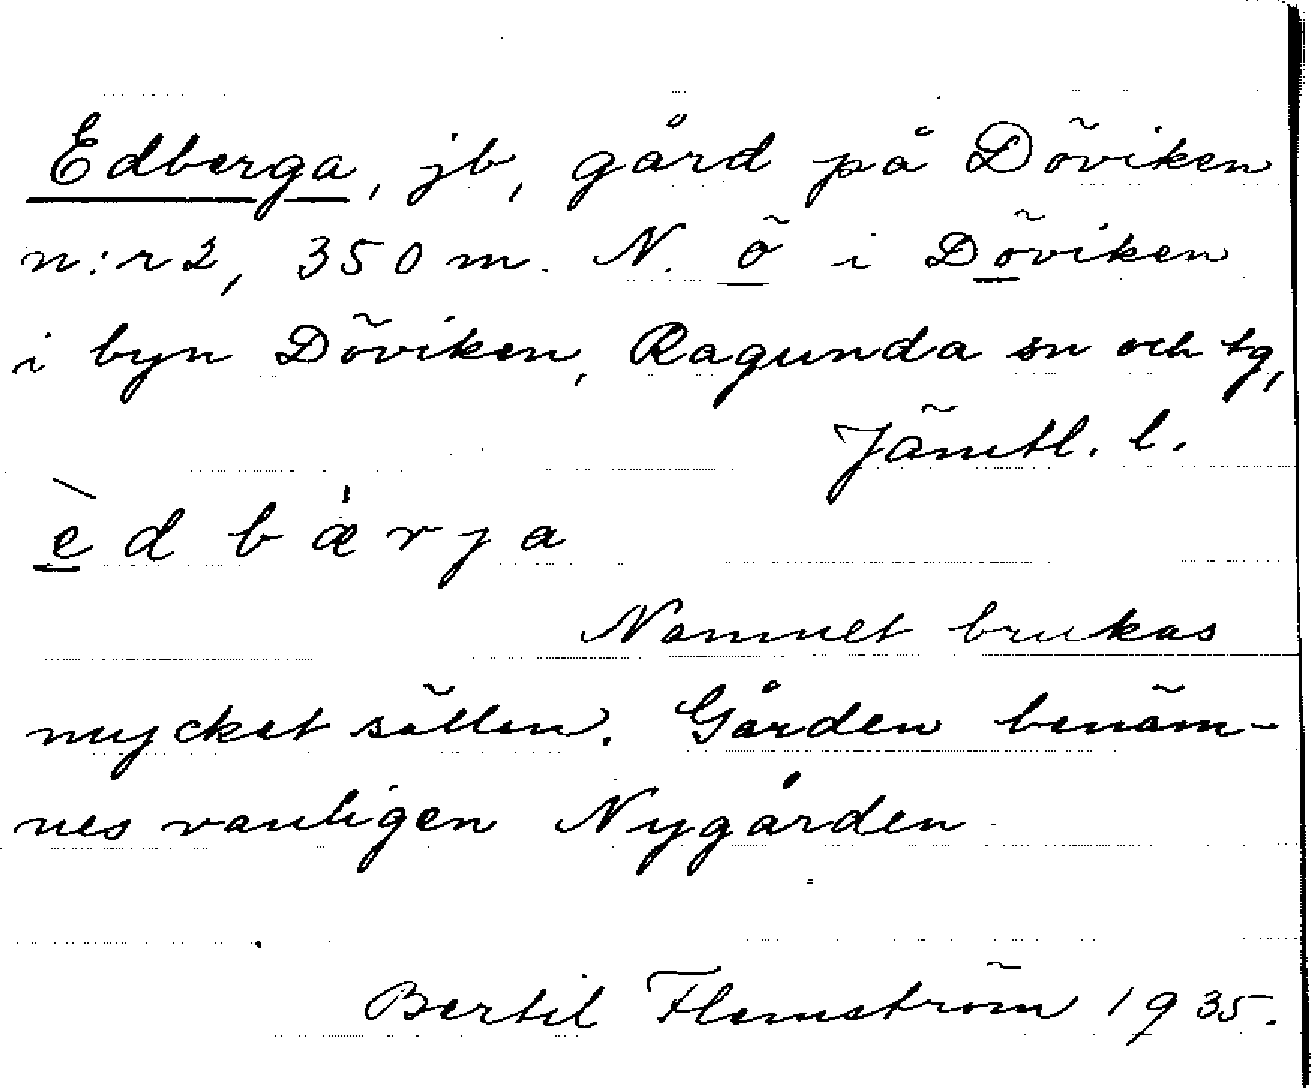 Edberga, jb, gård på Döviken
n:r 2, 350 m. N. ö i Döviken
i byn Döviken, Ragunda sn och tg,
Jämtl. l.
è d b æ̍ r j a
Namnet brukas
mycket sällen. Gården benäm-
nes vanligen Nygården
Bertil Flemström 1935.